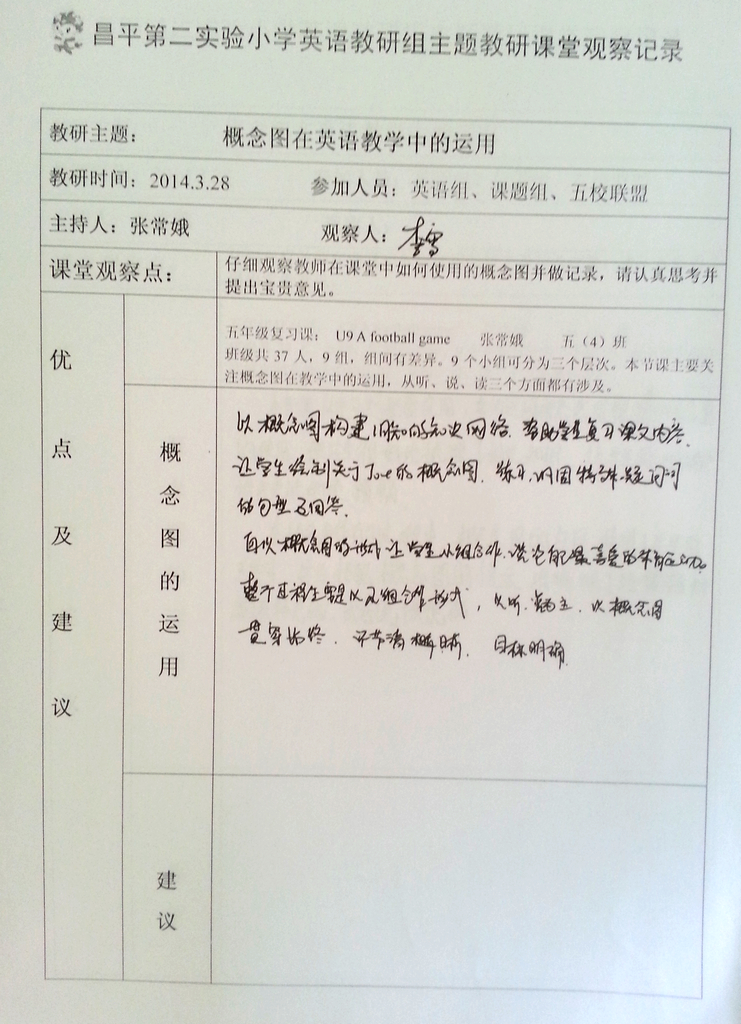 昌平第二实验小学英语教研组主题教研课堂观察记录
教研主题： 概念图在英语教学中的运用
教研时间：2014.3.28 参加人员：英语组、课题组、五校联盟
主持人：张常娥 观察人：李雪
课堂观察点：
仔细观察教师在课堂中如何使用的概念图并做记录，请认真思考并
提出宝贵意见。
优点及建议
五年级复习课： U9 A football game 张常娥 五（4）班
班级共 37 人，9 组，组间有差异。9 个小组可分为三个层次。本节课主要关
注概念图在教学中的运用，从听、说、读三个方面都有涉及。
概念图的运用
以概念图构建旧知的知识网络，帮助学生复习课文内容。
让学生绘制关于Joe的概念图，练习、巩固特殊疑问词
的句型及回答。
再以概念图的形式让学生小组合作，谈论最喜爱的
整个过程主要是以小组合作形式，以听、说为主，以概念图
贯穿始终，环节清晰，目标明确。
建议